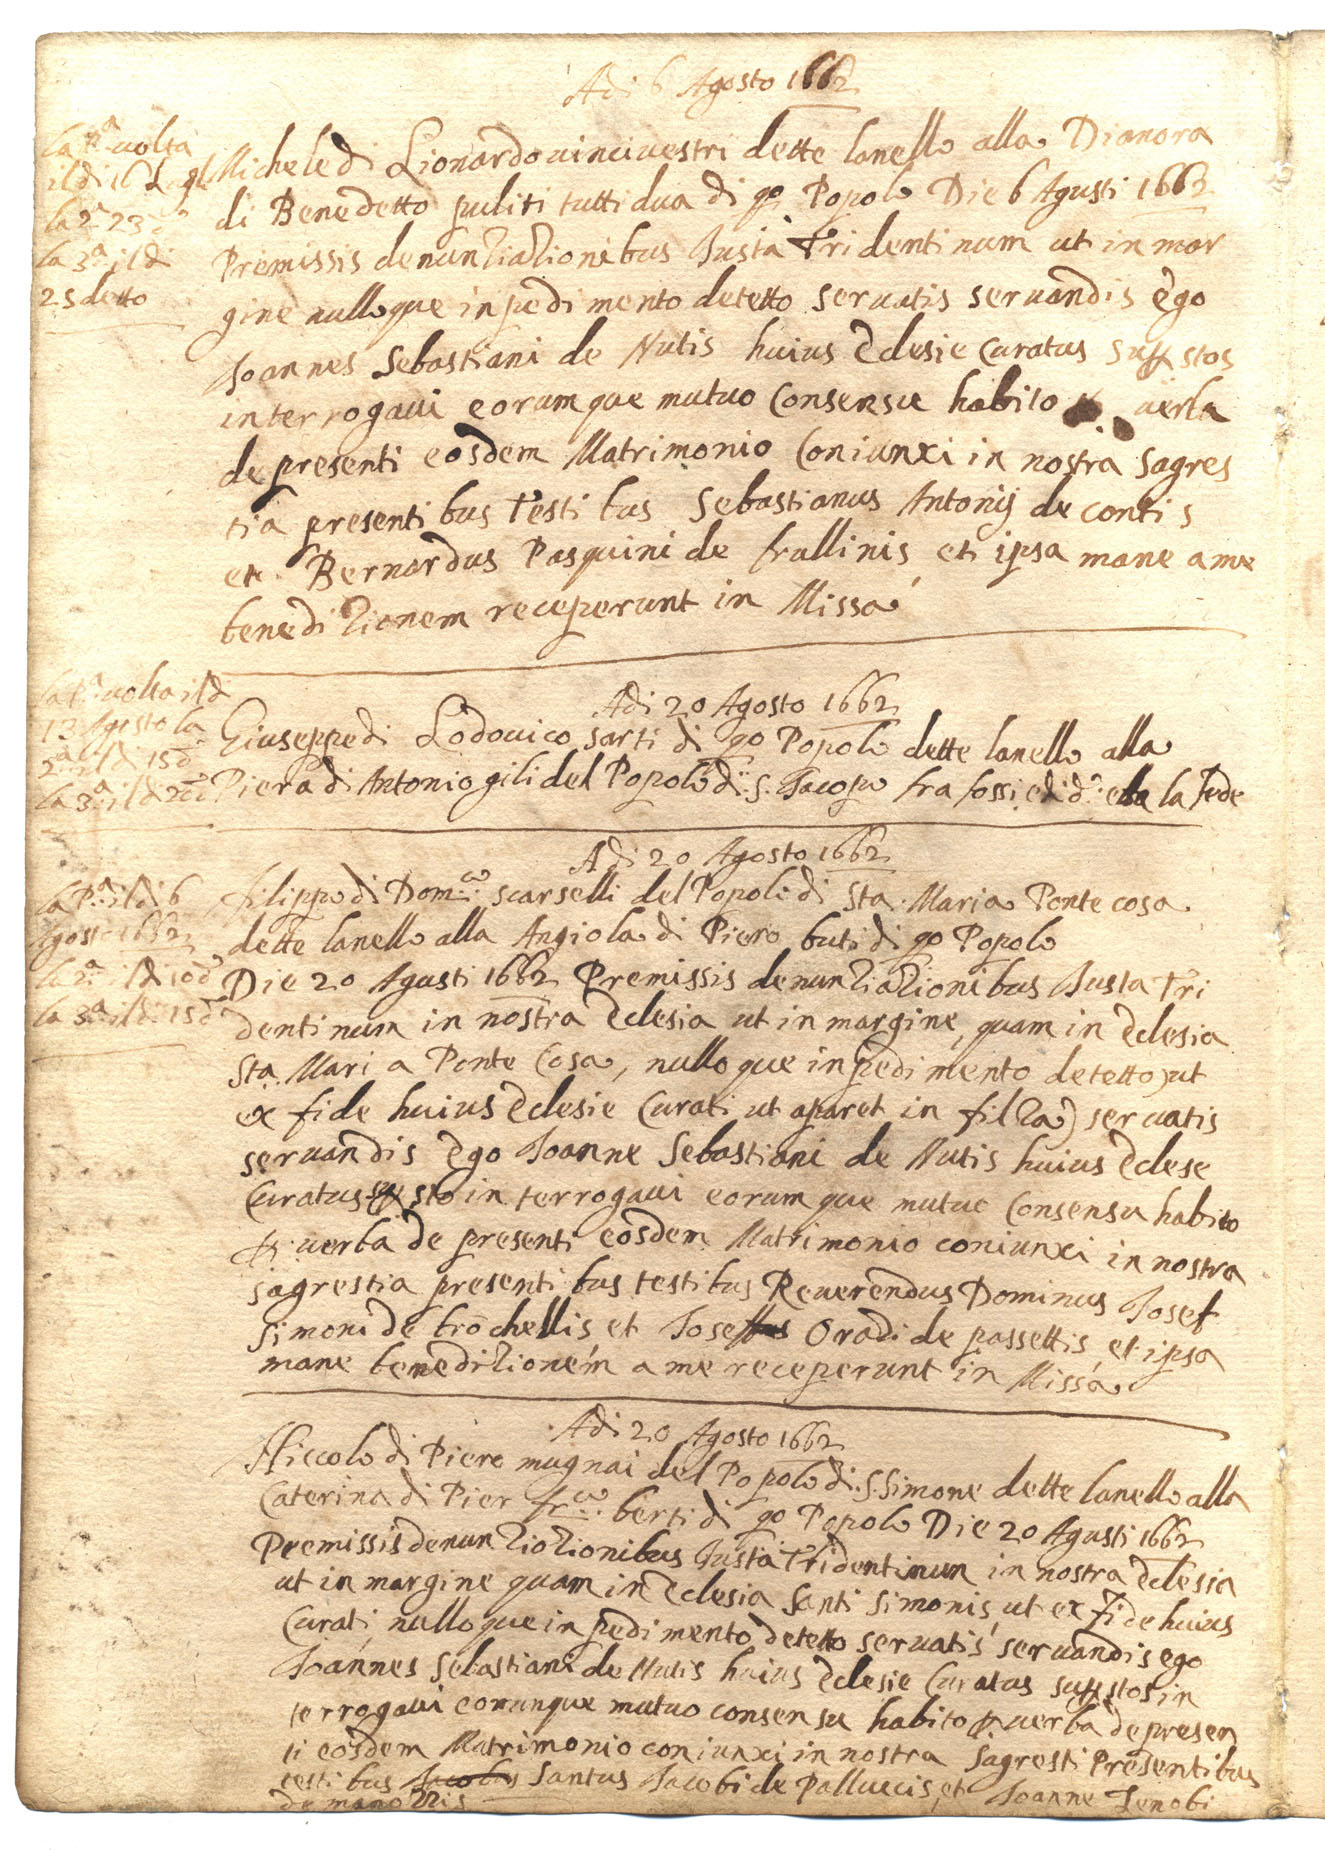 Adi 6 Agosto 1662
la p.a uolta
il di 16 Lugl
la 2.a 23 d.o
la 3.a il di
25 detto
Michele di Lionardo uinciuestri dette lanello alla Dianora
di Benedetto puliti tutti dua di qo Popolo Die 6 Agusti 1662
Premissis denunziazionibus Justa Tridentinum ut in mar
gine nulloque inpedimento detetto seruatis seruandis ego
Joannes Sebastiani de Nutis huius Eclesie Curatus supstos
interrogaui eorumque mutuo Consensu habito p. uerba
de presenti eosdem Matrimonio Coniunxi in nostra sagres
tia presentibus Testibus Sebastianus Antonij de contis
et Bernardus Pasquini de frullinis et ipsa mane a me
benedizionem receperunt in Missa
la p.a uolta il di
13 Agosto la
2.a il di 15 d
la 3.a il di 20 d
Adi 20 Agosto 1662
Giuseppe di Lodouico sarti di qo Popolo dette lanello alla
Piera di Antonio gili del Popolo di S. Jacopo fra fossi la fede
la P.a il di 6
Agosto 1662
la 2.a il di 10 d.o
la 3.a il di 15 d
Adi 20 Agosto 1662
filippo di Dom.co scarselli del Popolo di Sta Maria Ponte cosa
dette lanello alla Angiola di Piero buti di qo Popolo
Die 20 Agusti 1662 Premissis denunziazionibus Justa Tri
dentinum in nostra Eclesia ut in margine, quam in Eclesia
Sta Maria Ponte Cosa, nulloque inpedimento detetto) ut
ex fide huius Eclesie Curati ut aparet in filza) seruatis
seruandis Ego Joanne Sebastiani de Nutis huius Eclese
Curatus supsto interrogaui eorumque mutuo Consensu habito
p. uerba de presenti eosdem Matrimonio coniunxi in nostra
sagrestia presentibus testibus Reuerendus Dominus Josef
Simoni de brochellis et Josef Oradi de passettis et ipsa
mane benedizionem a me receperunt in Missa
Adi 20 Agosto 1662
Niccolo di Piero mugnai del Popolo di S. Simone dette lanello alla
Caterina di Pier fr.co berti di qo Popolo Die 20 Agusti 1662
Premissis denunziazionibus Justa Tridentinun in nostra Eclesia
ut in margine quam in Eclesia Santi Simonis, ut ex fide huius
Curati, nulloque inpedimento detetto seruatis seruandis ego
Joannes Sebastiani de Nutis huius Eclesie Curatus supstos in
terrogaui eorunque mutuo consensu habito p uerba de presen
ti eosdem Matrimonio coniunxi in nostra Sagresti Presentibus
testibus Jacobus Santus Jacobi de Palluccis, et Joanne Zenobi
de manozzis